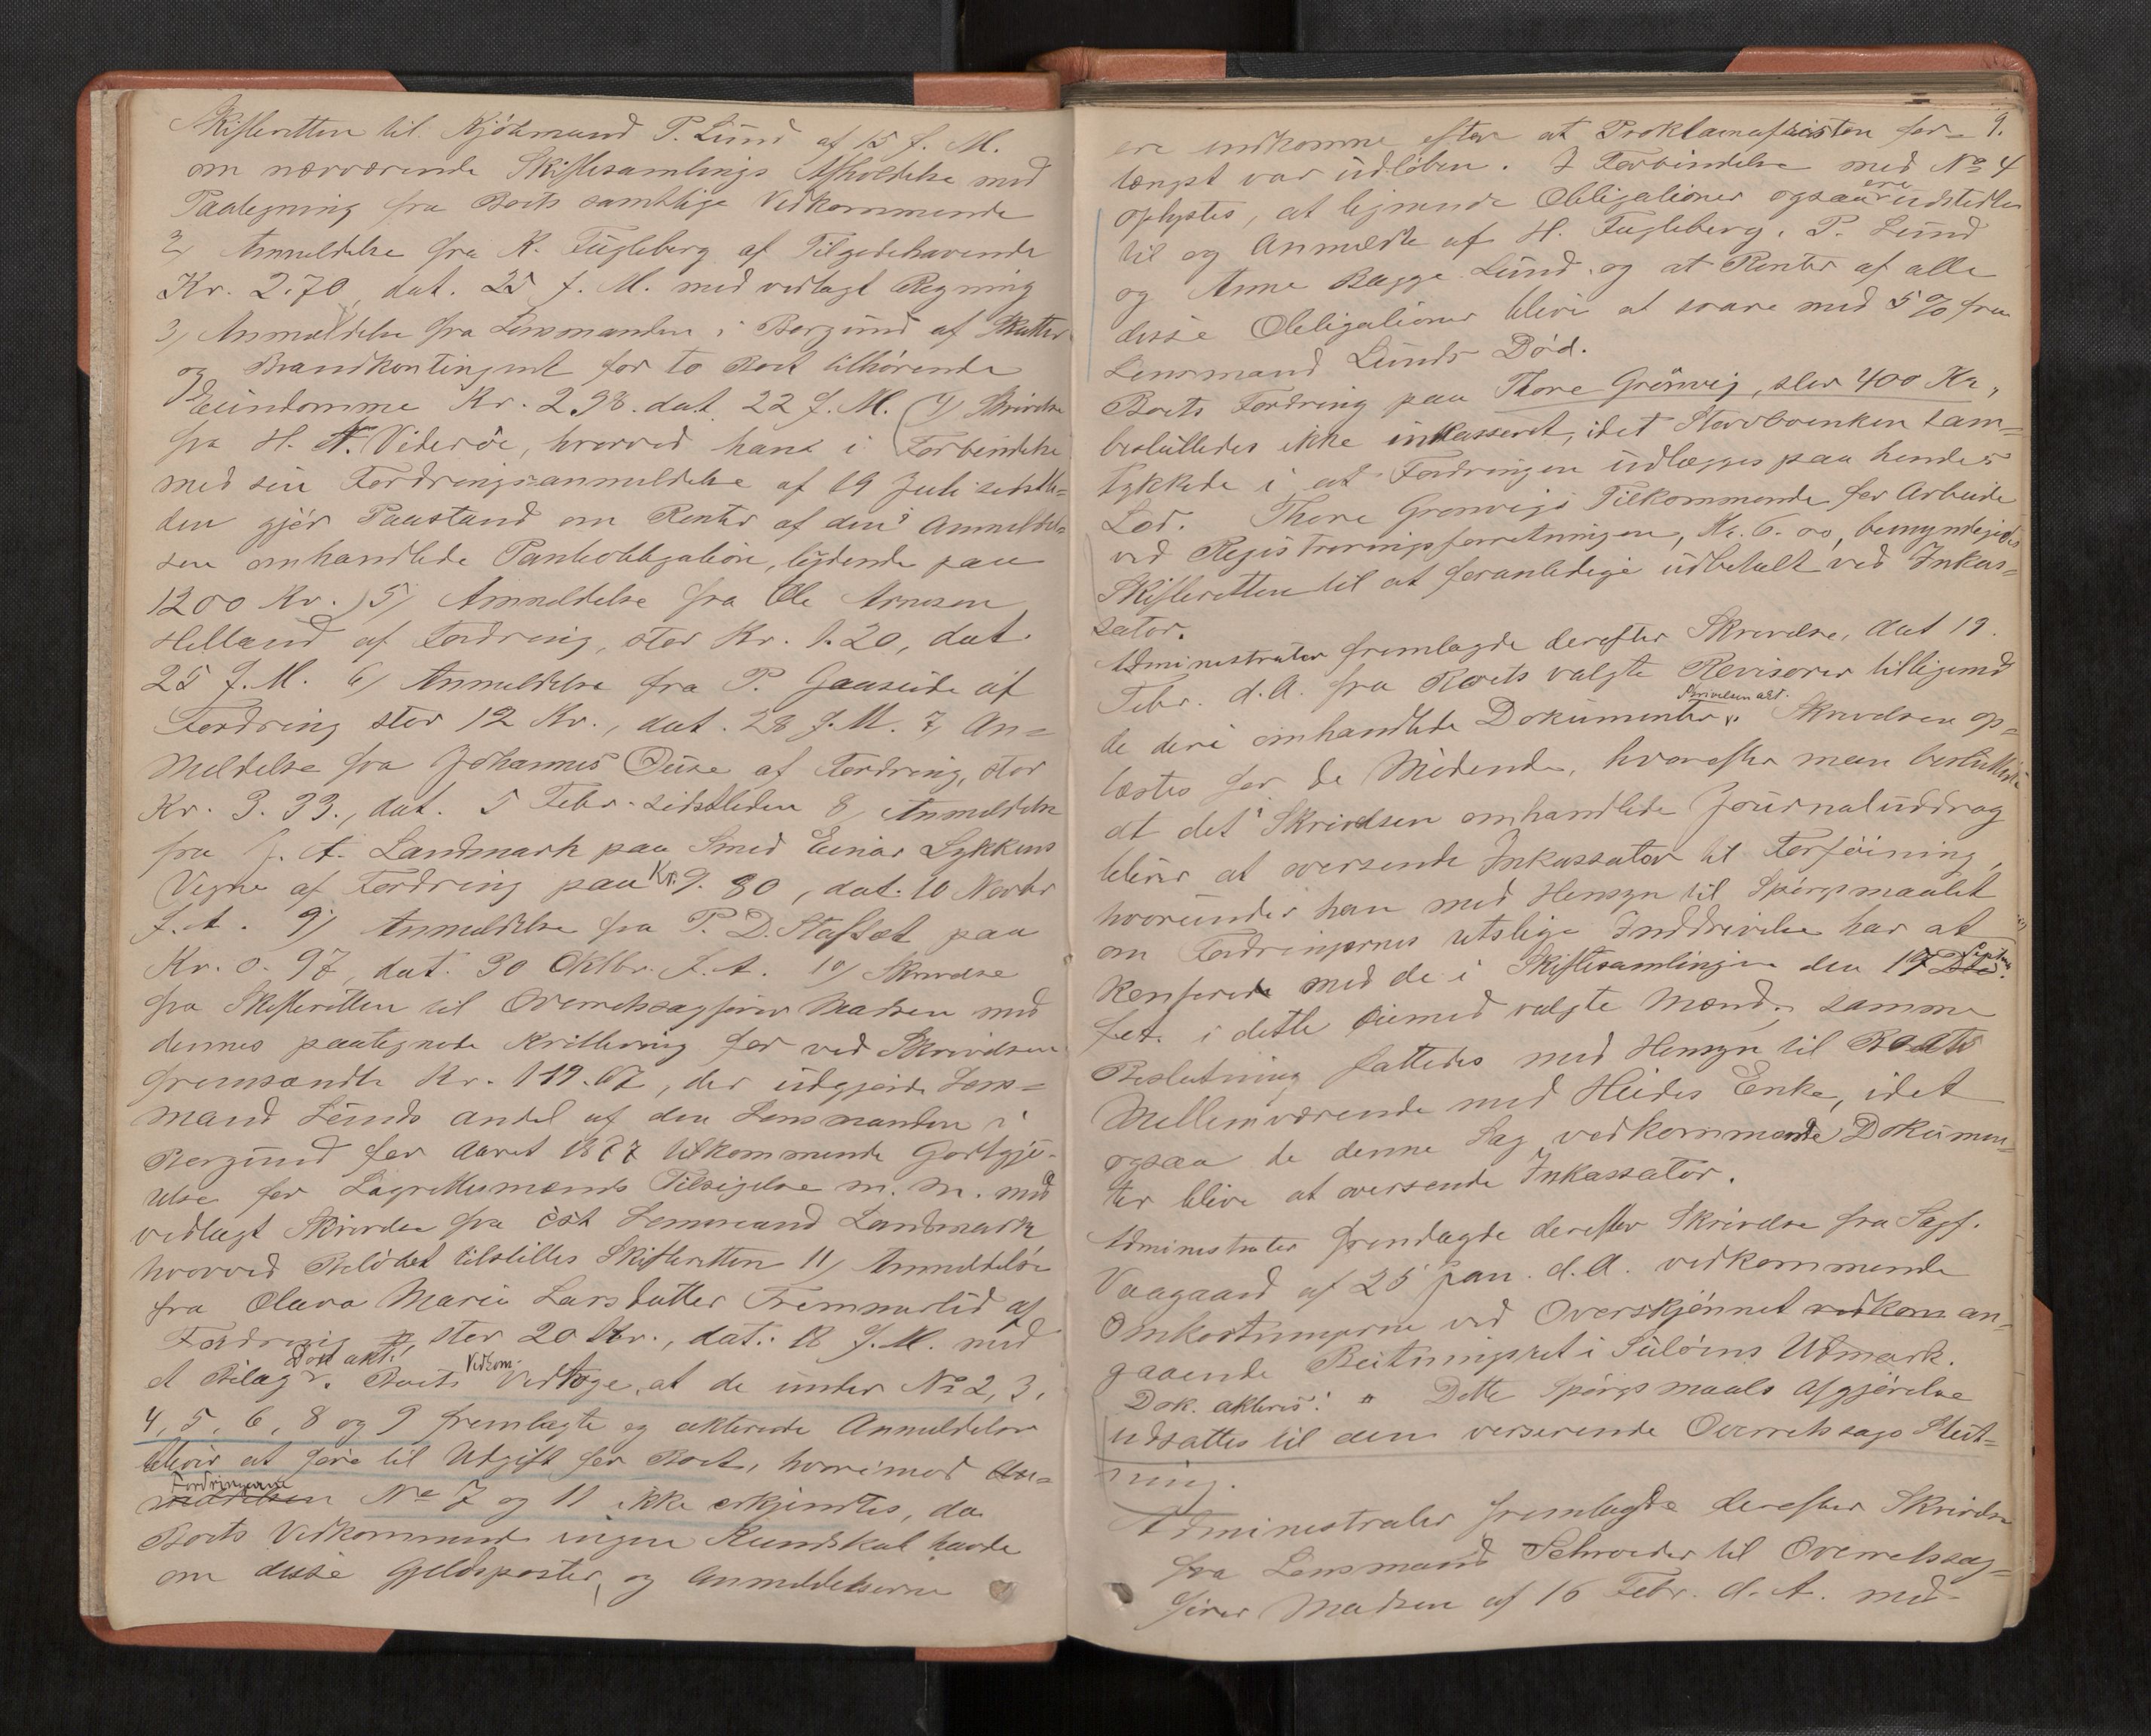 Skifteretten til Kjøbmand P. Lund af 15 f. M.
om nærværende Skiftesamlings Afholdelse med
Paategning fra Boets samtlige Vedkommende
2) Anmeldelse fra K. Fugleberg af Tilgodehavende
Kr. 2.70, dat. 25 f. M. med vedlagt Regning
3) Anmeldelse fra Lensmanden i Borgund af Skatter
og Brandkontingent for to Boet tilhørende
Eiendomme Kr. 2.98. dat. 22 f. M. (4) Skrivelse
fra H. N. Viderøe, hvorved hans i Forbindelse
med sin Fordringsanmeldelse af 19 Juli sidstle=
den gjør Paastand om Renter af den i Anmeldel=
sen omhandlede Panteobligation, lydende paa
1200 Kr.) 5) Anmeldelse fra Ole Arnesen
Helland af Fordring, stor Kr. 1.20, dat.
25 f. M. 6) Anmeldelse fra P. Gaaseide af
Fordring stor 12 Kr., dat. 28 f. M. 7) An=
meldelse fra Johannes Ouse af Fordring, stor
Kr. 3.33., dat. 5 Febr. sidstleden 8) Anmeldelse
fra J. A. Landmark paa Smed Einar Lykkens
Vegne af Fordring paa Kr. 9. 80, dat. 10 Novbr
f. A. 9) Anmeldelse fra P. D. Stafset paa
Kr. 0. 97, dat. 30 Oktbr. f. A. 10) Skrivelse
fra Skifteretten til Overretssagfører Madsen med
dennes paategnede Kvittering for ved Skrivelsen
fremsendte Kr. 119.67, der udgjorde Lens=
mand Lunds Andel af den Lensmanden i
Borgund for Aaret 1887 tilkommende Godtgjø=
relse for Lagrettesmænds Tilsigelse m. m. med
vedlagt Skrivelse fra cst Lensmand Landmark
hvorved Beløbet tilstilles Skifteretten 11) Anmeldelse
fra Olava Marie Larsdatter Fremmerlid af
Fordring, stor 20 Kr., dat. 18 f. M. med
et Bilag. Dok akt. Boets Vedkom. vedtoge, at de under No 2, 3,
4, 5, 6, 8 og 9 fremlagte og akterede Anmeldelser
bliver at føre til Udgift for Boet, hvorimod An=
meldelsen Fordringerne No 7 og 11 ikke erkjendtes, da
Boets Vedkommende ingen Kundskab havde
om disse Gjeldsposter, og Anmeldelserne
9.
ere indkomne efter at Proklamafristen for=
længst var udløben. I Forbindelse med No 4
oplystes, at lignende Obligationer ogsaa ere udstedte
til og anmeldte af H. Fugleberg, P. Lund
og Anne Bagge Lund og at Renter af alle
disse Obligationer blive at svare med 5 % fra
Lensmand Lunds Død.
Boets Fordring paa Thore Grønvig, stor 400 Kr.,
besluttedes ikke inkasseret, idet Stervboenken sam=
tykkede i at Fordringen udlægges paa hendes
Lod. Thore Grønvigs Tilkommende for Arbeide
ved Registreringsforretningen, Kr. 6.00, bemyndigedes
Skifteretten til at foranledige udbetalt ved Inkas=
sator.
Administrator fremlagde derefter Skrivelse, dat 19.
Febr. d. A. fra Boets valgte Revisorer tilligemed
de deri omhandlede Dokumenter. Skrivelsen akt. Skrivelsen op=
læstes for de Mødende, hvorefter man besluttede
at det i Skrivelsen omhandlede Journaluddrag
bliver at oversende Inkassator til Forføining,
hvorunder han med Hensyn til Spørgsmaalet
om Fordringernes retslige Inddrivelse har at
konferere med de i Skiftesamlingen den 17 Septbr.
f. A. i dette Øiemed valgte Mænd; samme
Beslutning fattedes med Hensyn til Boets
Mellemværende med Heides Enke, idet
ogsaa de denne Sag vedkommende Dokumen=
ter blive at oversende Inkassator.
Administrator fremlagde derefter Skrivelse fra Sagf.
Vaagaard af 25 Jan. d. A. vedkommende
Omkostningerne ved Overskjønnet vedkom an=
gaaende Beitningsret i Suløens Udmark.
Dok. akteres: Dette Spørgsmaals Afgjørelse
udsattes til den verserende Overretssags Slut=
ning.
Administrator fremlagde derefter Skrivelse
fra Lensmand Schrøder til Overretssag=
fører Madsen af 16 Febr. d. A. med